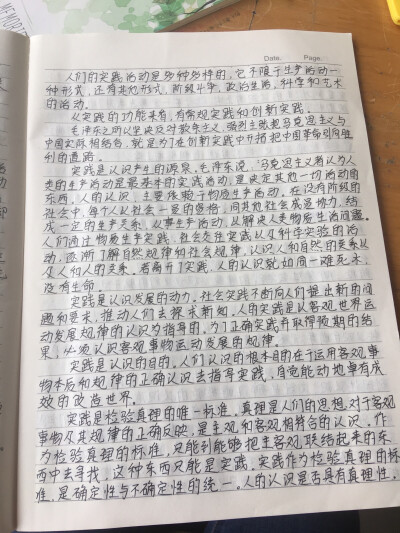 MEMORIE
Date.      Page.
人们的实践活动是多种多样的，它不限于生产活动一
种形式，还有其他形式，阶级斗争，政治生活，科学和艺术
的活动。
从实践的功能来看，有常规实践和创新实践。
毛泽东之所以坚决反对教条主义，强烈主张把马克思主义与
中国实际相结合，就是为了在创新实践中开拓把中国革命引向胜
利的道路。
实践是认识产生的源泉。毛泽东说，"马克思主义者认为人
类的生产活动是最基本的实践活动，是决定其他一切活动的
东西，人的认识，主要依赖于物质生产活动。在没有阶级的
社会中，每个人以社会一员的资格，同其他社会成员协力，结
成一定的生产关系，从事生产活动，以解决人类物质生活问题。
人们通过物质生产实践，社会交往实践以及科学实验的活
动，逐渐了解自然规律和社会规律，认识人和自然的关系以
及人和人的关系。若离开了实践，人的认识就如同一滩死水，
没有生命。
实践是认识发展的动力。社会实践不断向人们提出新的问
题和要求，推动人们去探求新知。人的实践是以客观世界运
动发展规律的认识为指导的。为了正确实践并取得预期的结
果，必须认识客观事物运动发展的规律。
实践是认识的目的。人们认识的根本目的在于运用客观事
物本质和规律的正确认识去指导实践，自觉能动地卓有成
效的改造世界。
实践是检验真理的唯一标准。真理是人们的思想，对于客观
事物及其规律的正确反映，是主观和客观相符合的认识，作
为检验真理的标准，只能到能够把主客观联结起来的东
西中去寻找，这种东西只能是实践。实践作为检验真理的标
准，是确定性与不确定性的统一。人的认识是否具有真理性，